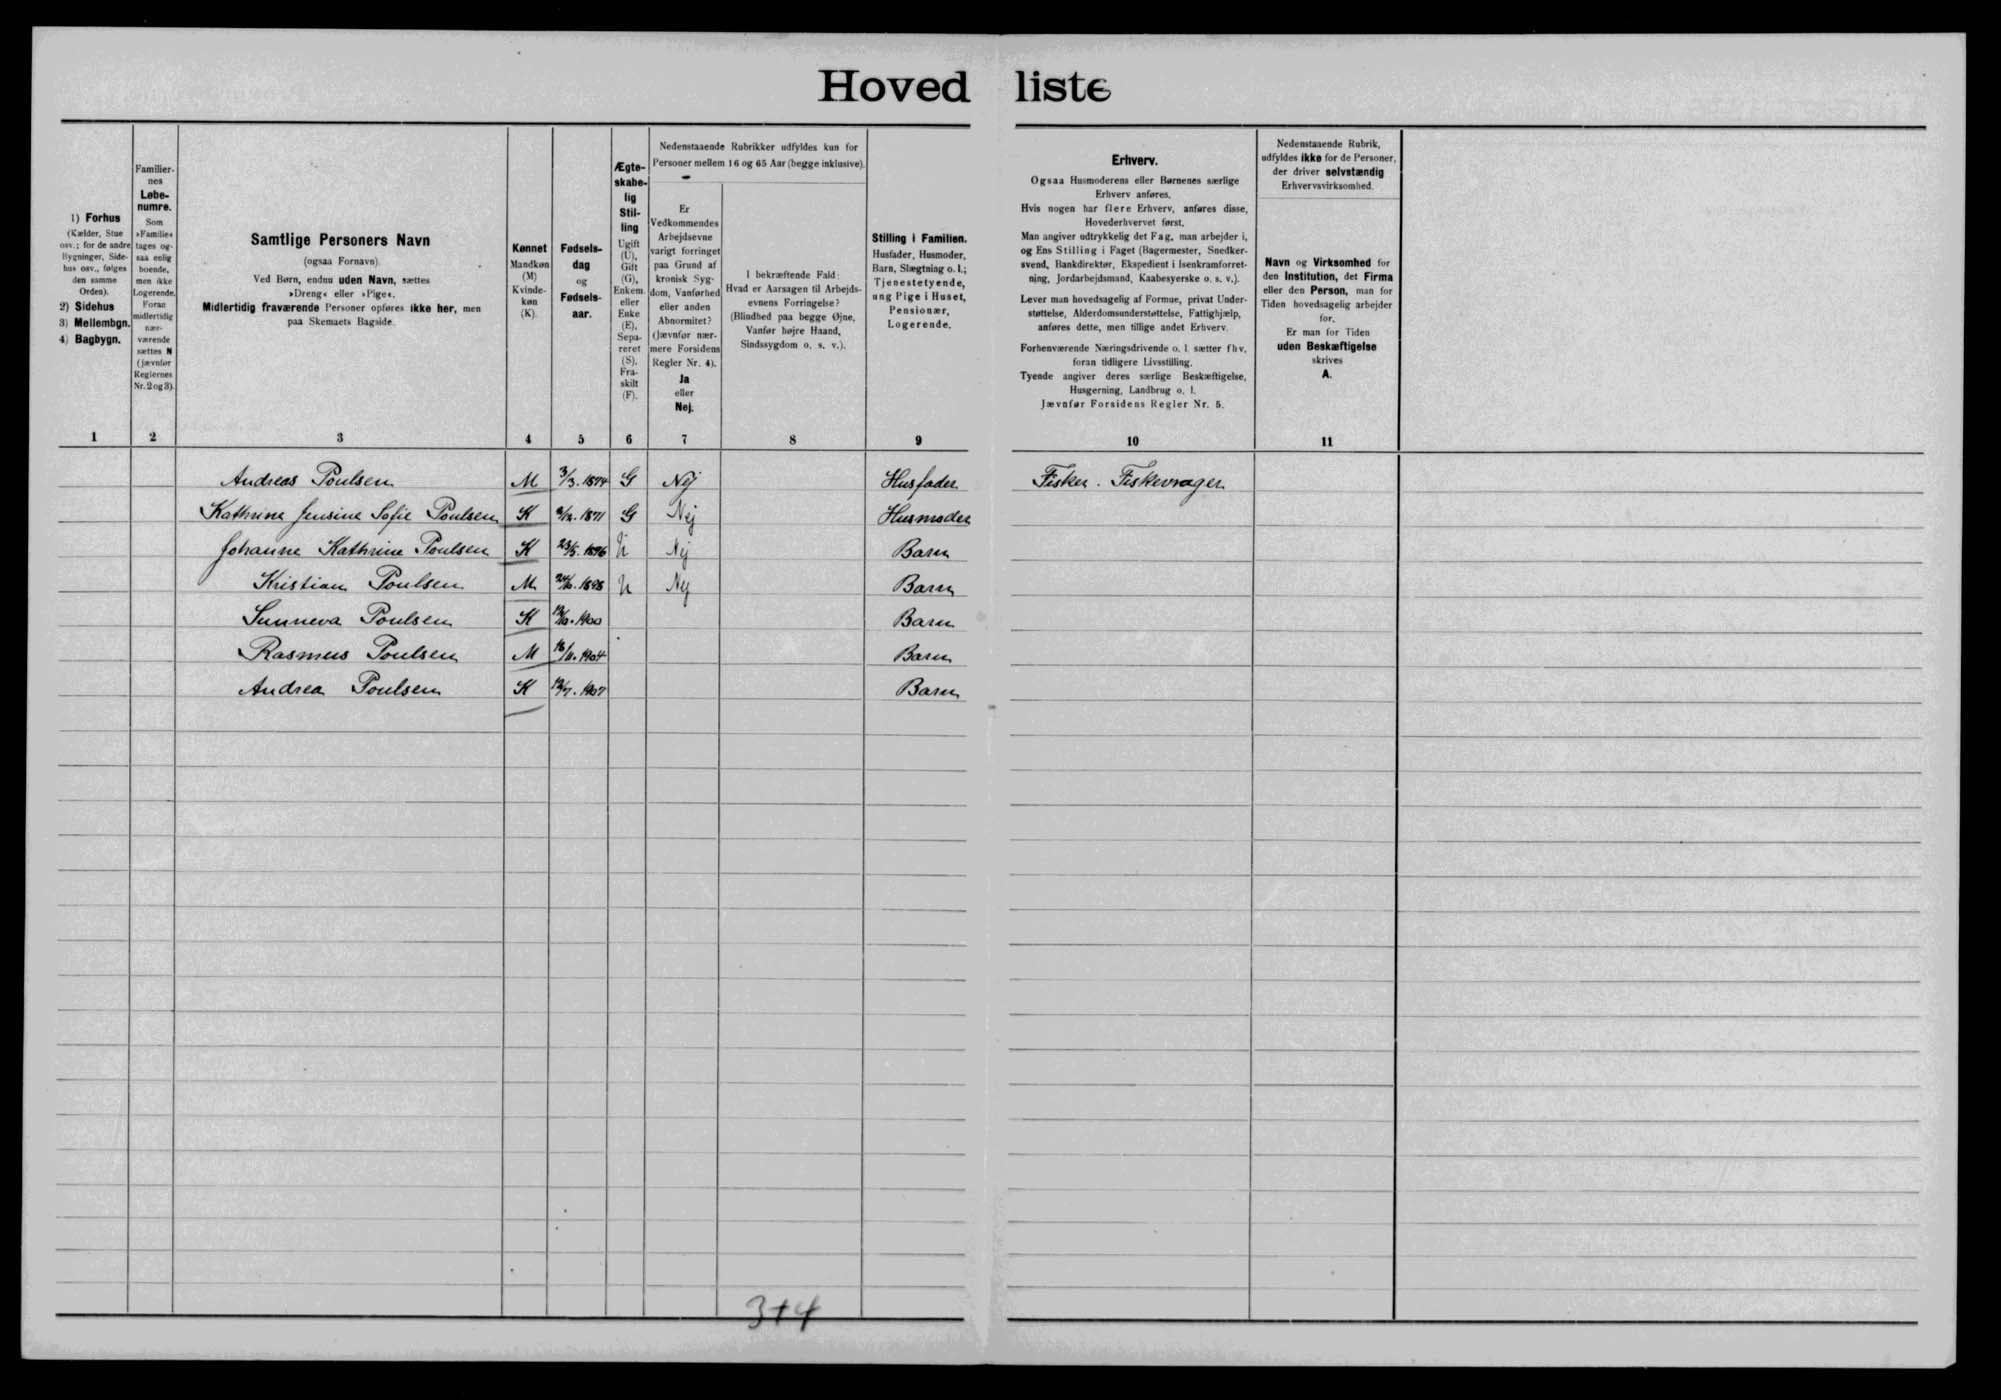 Hoved liste
1) Forhus
(Kælder, Stue
osv.; for de andre
Bygninger, Side-
hus osv., følges
den samme
Orden).
2) Sidehus
3) Mellembgn.
4) Bagbygn.
Familier-
nes
Løbe-
numre.
Som
»Familie«
tages og-
saa enlig
boende,
men ikke
Logerende.
Foran
midlertidig
nær-
værende
sættes N
(jævnfør
Reglernes
Nr. 2 og 3).
Samtlige Personers Navn
(ogsaa Fornavn).
Ved Børn, endnu uden Navn, sættes
»Dreng« eller »Pige«.
Midlertidig fraværende Personer opføres ikke her, men
paa Skemaets Bagside.
Kønnet
Mandkøn
(M)
Kvinde-
køn
(K).
Fødsels-
dag
og
Fødsels-
aar.
Ægte-
skabe-
lig
Stil-
ling
Ugift
(U),
Gift
(G),
Enkem.
eller
Enke
(E),
Sepa-
reret
(S).
Fra-
skilt
(F).
Nedenstaaende Rubrikker udfyldes kun for
Personer mellem 16 og 65 Aar (begge inklusive).
Er
Vedkommendes
Arbejdsevne
varigt forringet
paa Grund af
kronisk Syg-
dom, Vanførhed
eller anden
Abnormitet?
(Jævnfør nær-
mere Forsidens
Regler Nr. 4).
Ja
eller
Nej.
I bekræftende Fald:
Hvad er Aarsagen til Arbejds-
evnens Forringelse?
(Blindhed paa begge Øjne,
Vanfør højre Haand,
Sindssygdom o. s. v.).
Stilling i Familien.
Husfader, Husmoder,
Barn, Slægtning o. l.;
Tjenestetyende,
ung Pige i Huset,
Pensionær,
Logerende.
Erhverv.
Ogsaa Husmoderens eller Børnenes særlige
Erhverv anføres.
Hvis nogen har flere Erhverv, anføres disse,
Hovederhvervet først.
Man angiver udtrykkelig det Fag, man arbejder i,
og Ens Stilling i Faget (Bagermester, Snedker-
svend, Bankdirektør, Ekspedient i Isenkramforret-
ning, Jordarbejdsmand, Kaabesyerske o. s. v.).
Lever man hovedsagelig af Formue, privat Under-
støttelse, Alderdomsunderstøttelse, Fattighjælp,
anføres dette, men tillige andet Erhverv.
Forhenværende Næringsdrivende o. l. sætter fhv.
foran tidligere Livsstilling.
Tyende angiver deres særlige Beskæftigelse,
Husgerning, Landbrug o. l.
Jævnfør Forsidens Regler Nr. 5.
Nedenstaaende Rubrik,
udfyldes ikke for de Personer,
der driver selvstændig
Erhvervsvirksomhed.
Navn og Virksomhed for
den Institution, det Firma
eller den Person, man for
Tiden hovedsagelig arbejder
for.
Er man for Tiden
uden Beskæftigelse
skrives
A.
1 2 3 4 5 6 7 8 9 10 11
Andreas Poulsen M 3/3. 1874 G Nej Husfader Fisker. Fiskevrager
Kathrine Jensine Sofie Poulsen K 1871 G Nej Husmoder
Johanne Kathrine Poulsen K 23/5. 1896 U Nej Barn
Kristian Poulsen M 1898 U Nej Barn
Sunneva Poulsen K 1900 Barn
Rasmus Poulsen M 1904 Barn
Andrea Poulsen K 1907 Barn
3+4